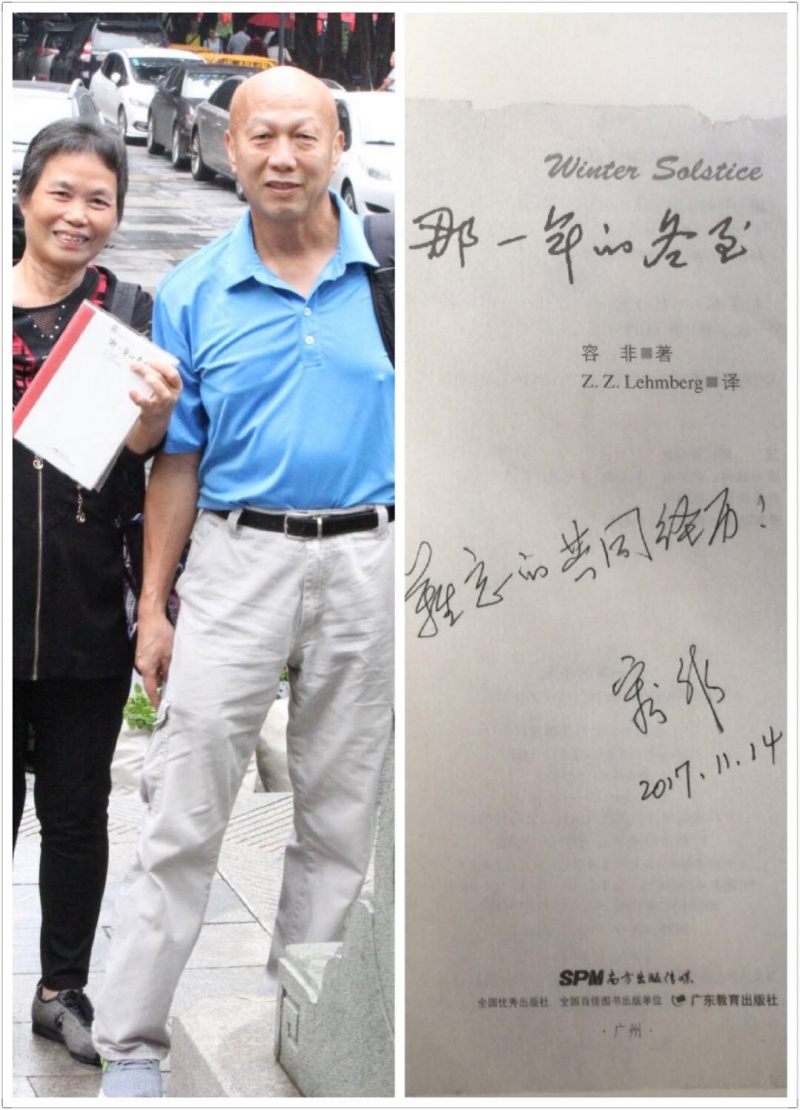 那一年的
Winter Solstice
那一年的冬至
容 非■著
Z. Z. Lehmberg■译
难忘的共同经历！
容非
2017.11.14
SPM 南方出版传媒
全国优秀出版社 全国百佳图书出版单位 广东教育出版社
·广州·